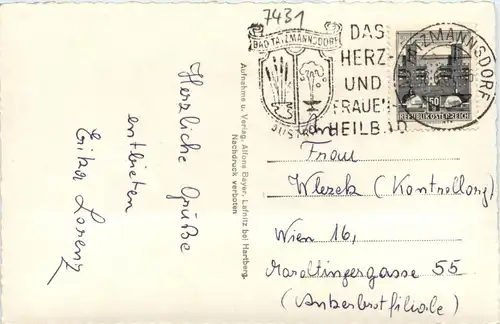 7431
BAD TATZMANNSDORF
DAS
HERZ-
UND
FRAUEN-
HEILBAD
TATZMANNSDORF
50
REPUBLIK ÖSTERREICH
Herzliche Grüße
entbieten
Lorenz
Aufnahme u. Verlag, Alfons Bayer, Lafnitz bei Hartberg.
Nachdruck verboten
An
Frau
Wlezek (Kontrollorg)
Wien 16,
Maroltingergasse 55
(Ankerbrotfiliale)